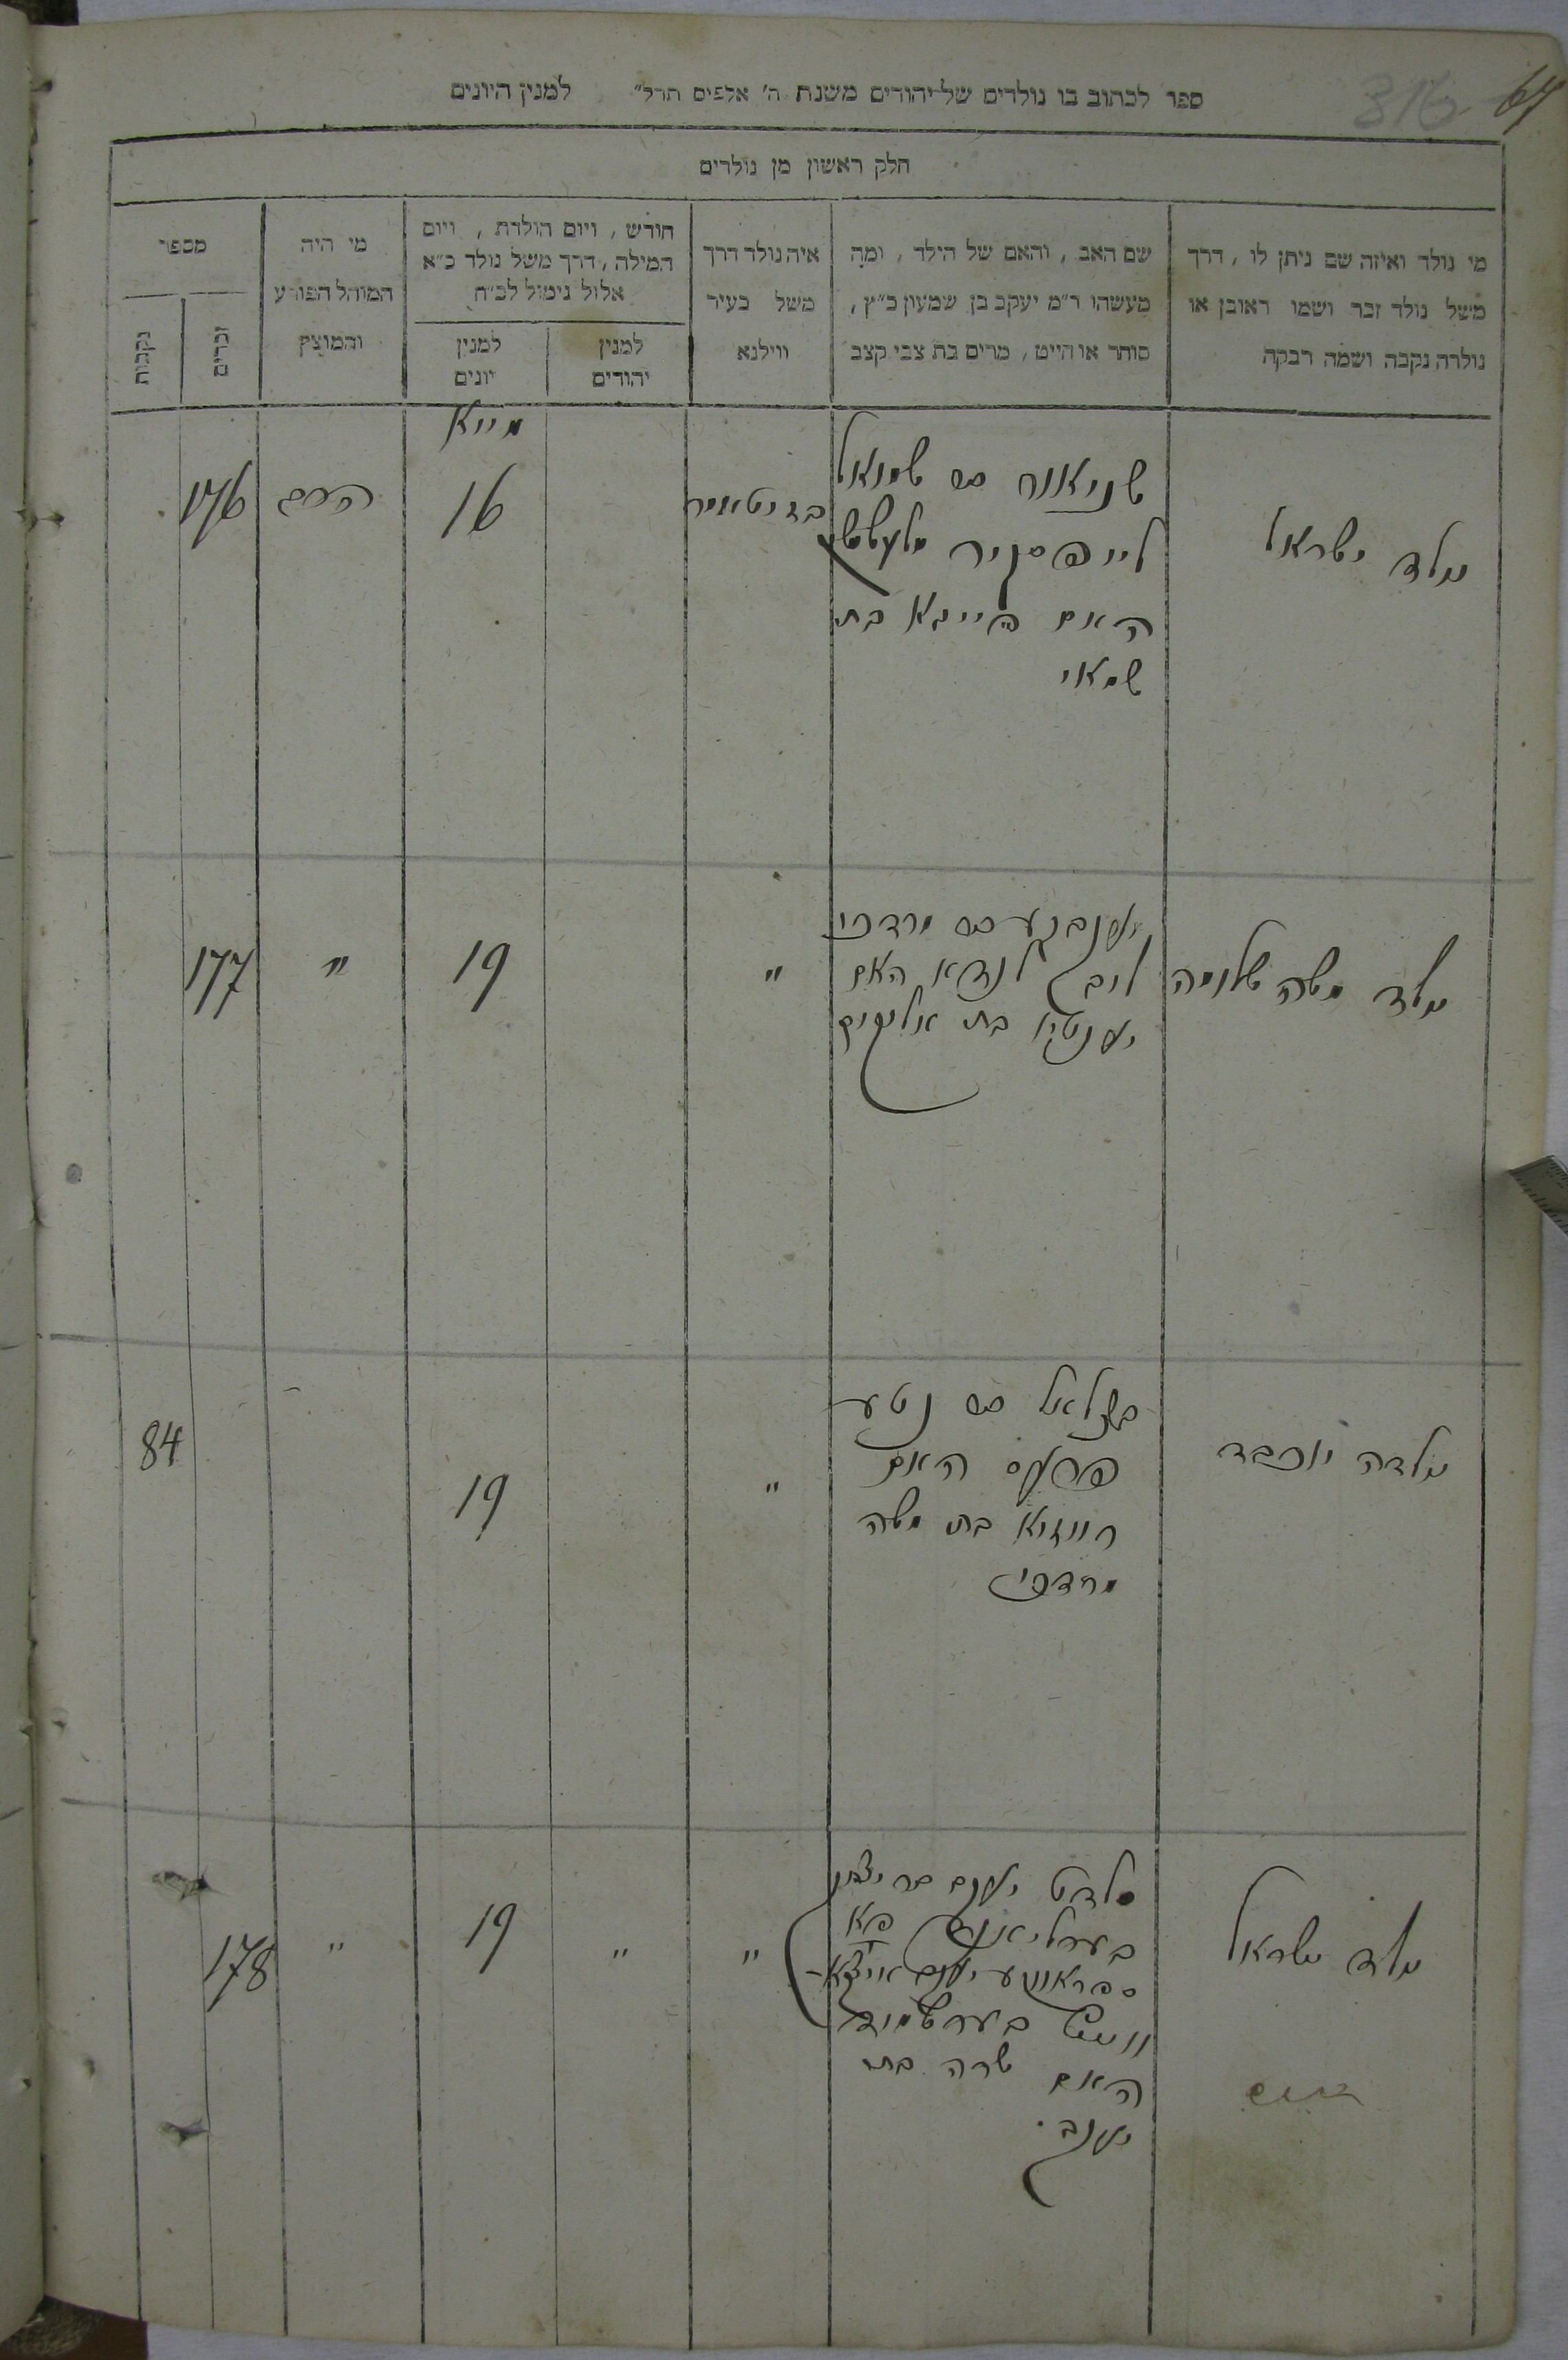 316 67
ספר לכתוב בו נולדים של יהודים משנת ה' אלפים תרל" למנין היונים
חלק ראשון מן נולדים
מי נולד ואיזה שם ניתן לו, דרך
משל נולד זכר ושמו ראובן או
נולדה נקבה ושמה רבקה
שם האב, והאם של הילד, ומה
מעשהו ר"מ יעקב בן שמעון כ"ץ,
סוחר או חייט, מרים בת צבי קצב
איה נולד דרך
משל בעיר
ווילנא
חודש, ויום הולדת, ויום
המילה, דרך משל נולד כ"א
אלול נימול לכ"ח
למנין
יהודים
למנין
יונים
מי היה
המוהל הפורע
והמוצץ
מספר
זכרים
נקבות
מייא
נולד ישראל
שניאור בה שמואל
האם חיינא בת
שמאי
בזיטאמיר
16
הרב
176
נולד משה שלומה
בה מרדכי
ליב לנדא האם
יענטא בת
"
19
"
177
נולדה יוכבד
בצלאל בה נטע
האם
רייזיא בת משה
מרדכי
"
19
84
נולד ישראל
סלדט יעקב
האם שרה בת
יעקב
"
"
19
"
178